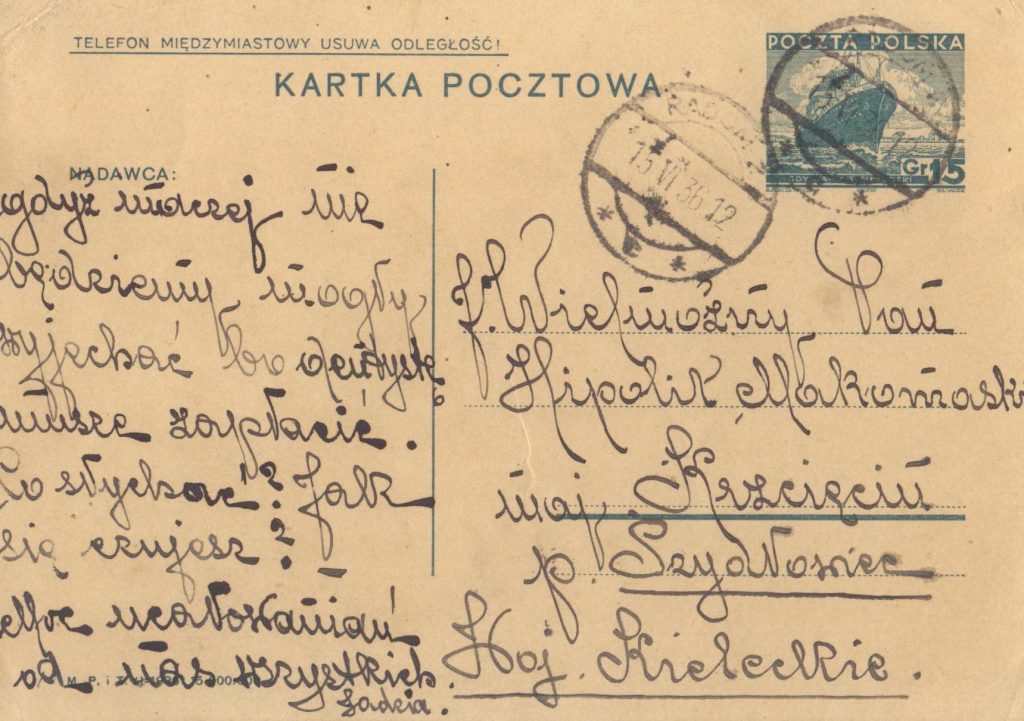 TELEFON MIĘDZYMIASTOWY USUWA ODLEGŁOŚĆ!
KARTKA POCZTOWA
POCZTA POLSKA
Gr. 15
RADOM
15 VI 36 12
NADAWCA:
gdyż inaczej nie
będziemy mogły
wyjechać bo dentystkę
muszę zapłacić.
Co słychać? Jak
się czujesz?
Moc ucałowań
od nas wszystkich.
Jadzia.
J. Wielmożny Pan
Hipolit Makomaski
maj. Krzcięcin
p. Szydłowiec
Woj. Kieleckie.